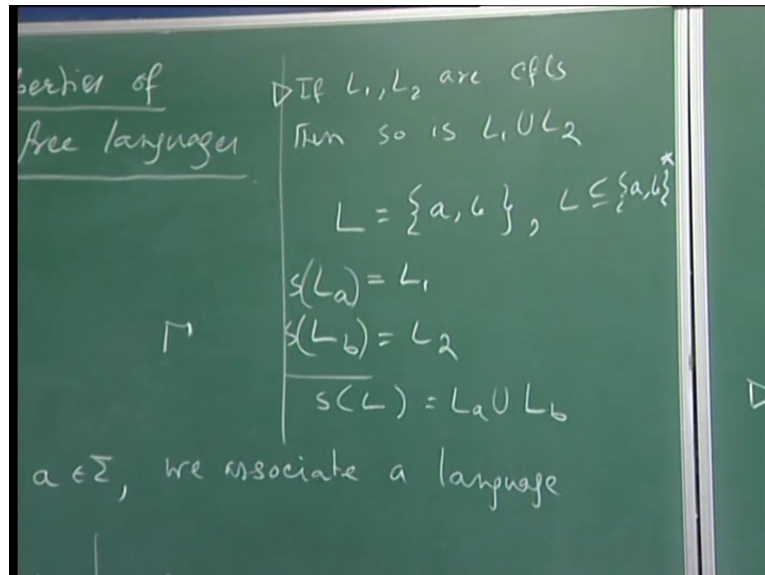 perties of
free languages
If L₁, L₂ are cfls
Then so is L₁ ∪ L₂
L = {a, b}, L ⊆ {a, b}*
s(La) = L₁
s(Lb) = L₂
s(L) = La ∪ Lb
Γ
a ∈ Σ, we associate a language